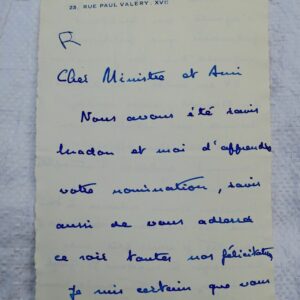 23, RUE PAUL VALÉRY. XVIᵉ
R
Cher Ministre et Ami
Nous avons été ravis
et moi d'apprendre
votre nomination, ravis
aussi de vous adresser
ce soir toutes nos félicitations
Je suis certain que vous